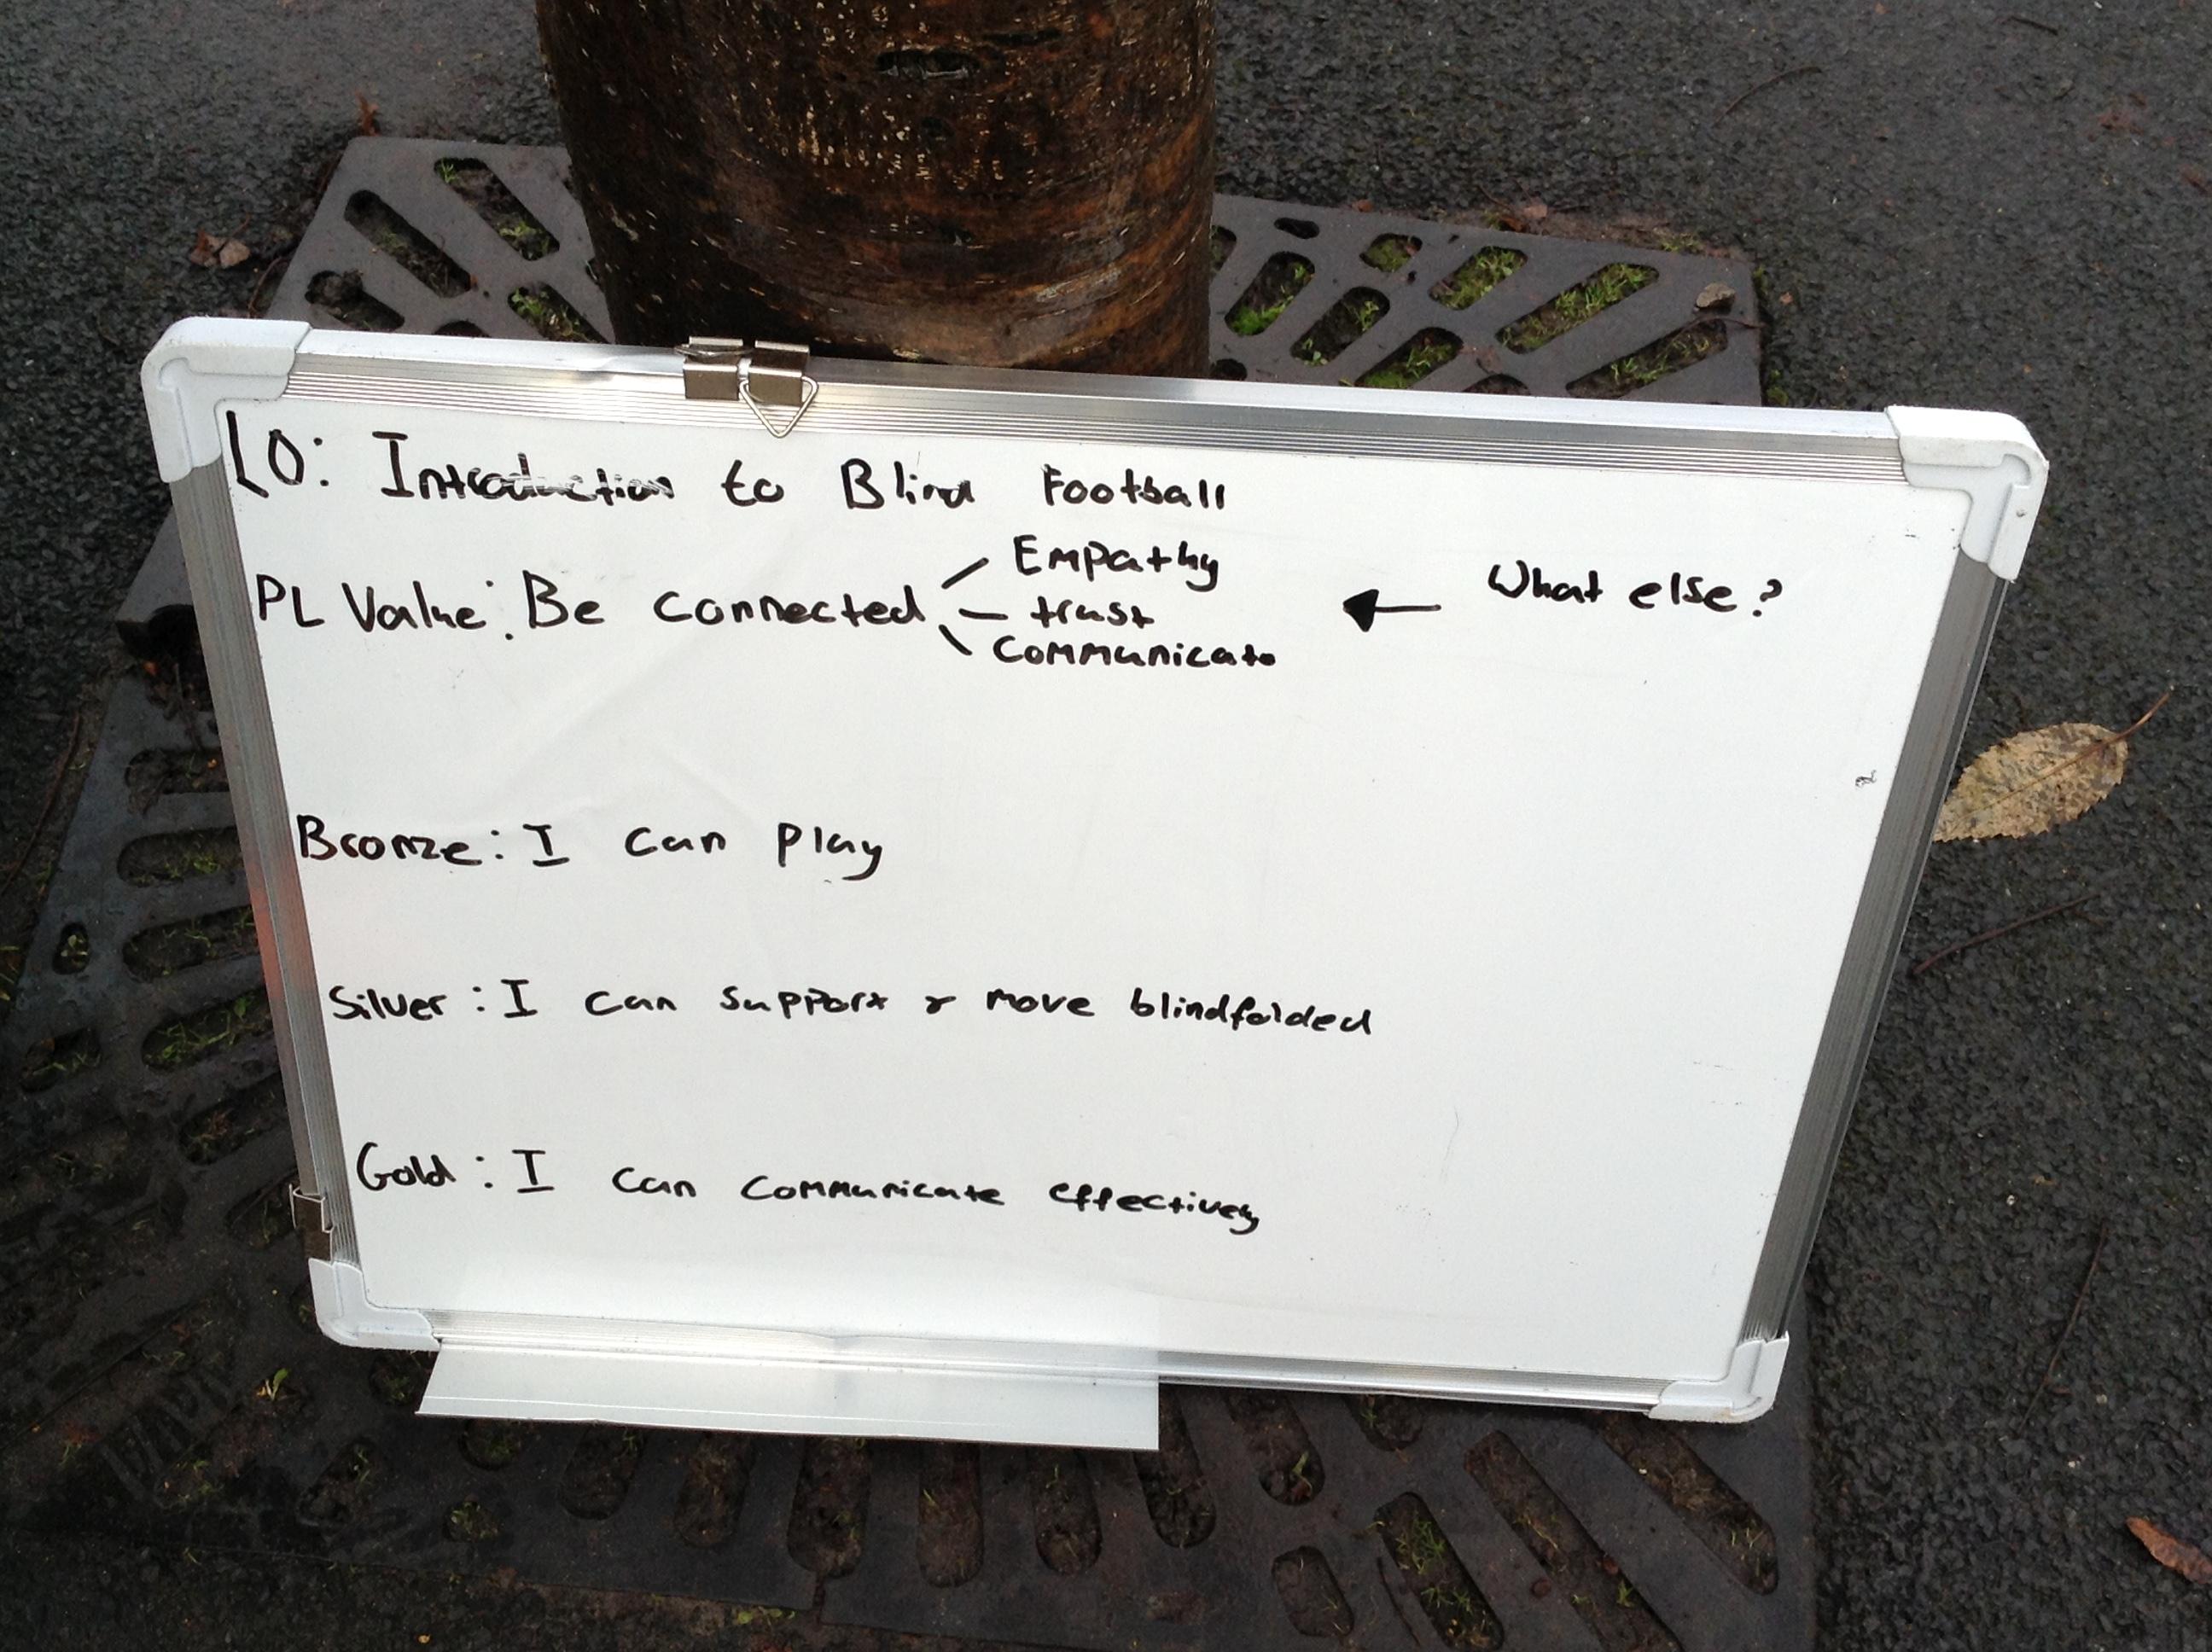 LO: Introduction to Blind Football
PL Value: Be connected
Empathy
trust
Communicate
What else?
Bronze: I can play
Silver: I can support & move blindfolded
Gold: I can communicate effectively